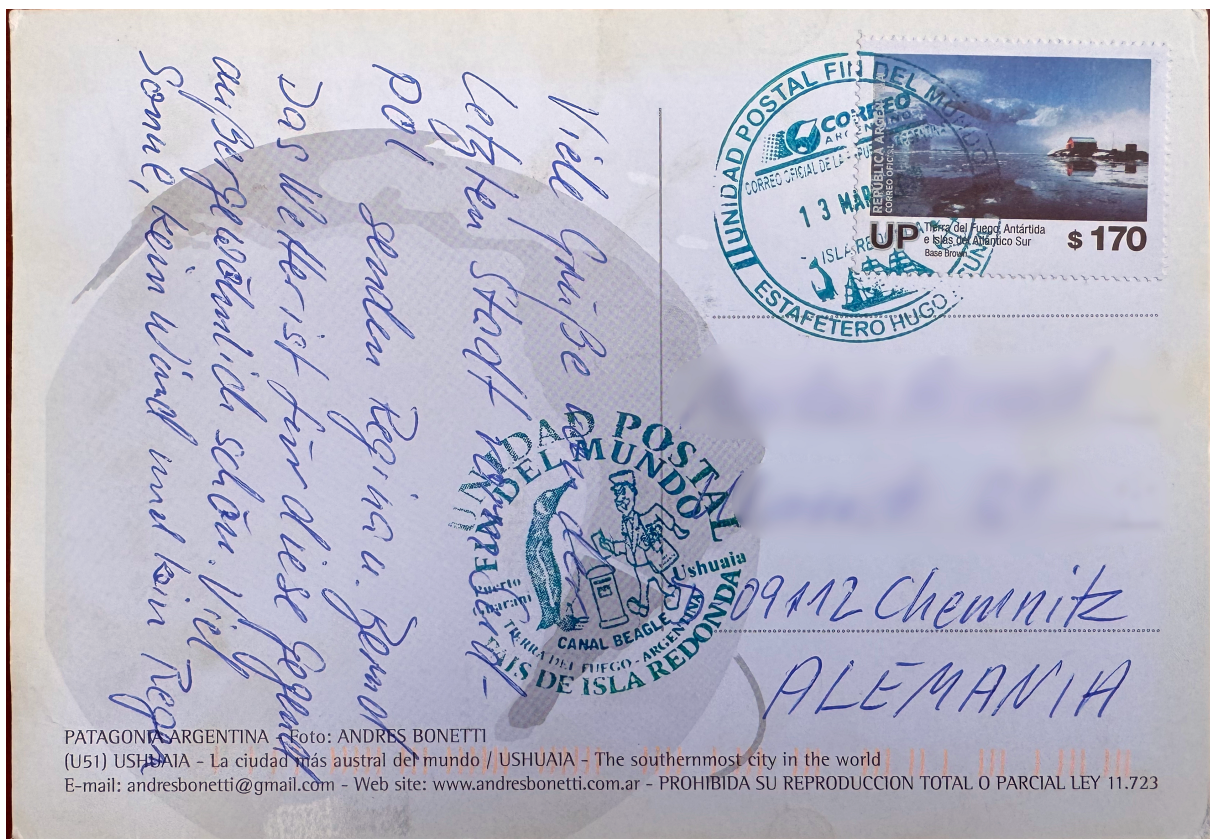 Viele Grüße von der
letzten Stadt vorm Süd-
pol senden Regina u. Bernd
Das Wetter ist für diese Gegend
außergewöhnlich schön. Viel
Sonne, kein Wind und kein Regen
UNIDAD POSTAL FIN DEL MUNDO
CORREO
ARGENTINO
CORREO OFICIAL DE LA REPUBLICA ARGENTINA
13 MAR
ISLA RE
ESTAFETERO HUGO
REPÚBLICA ARGENTINA
CORREO OFICIAL
UP
Tierra del Fuego, Antártida
e Islas del Atlántico Sur
Base Brown
$ 170
UNIDAD POSTAL
FIN DEL MUNDO
Ushuaia
CANAL BEAGLE
TIERRA DEL FUEGO - ARGENTINA
PAIS DE ISLA REDONDA
09112 Chemnitz
ALEMANIA
PATAGONIA ARGENTINA - Foto: ANDRES BONETTI
(U51) USHUAIA - La ciudad más austral del mundo / USHUAIA - The southernmost city in the world
E-mail: andresbonetti@gmail.com - Web site: www.andresbonetti.com.ar - PROHIBIDA SU REPRODUCCION TOTAL O PARCIAL LEY 11.723